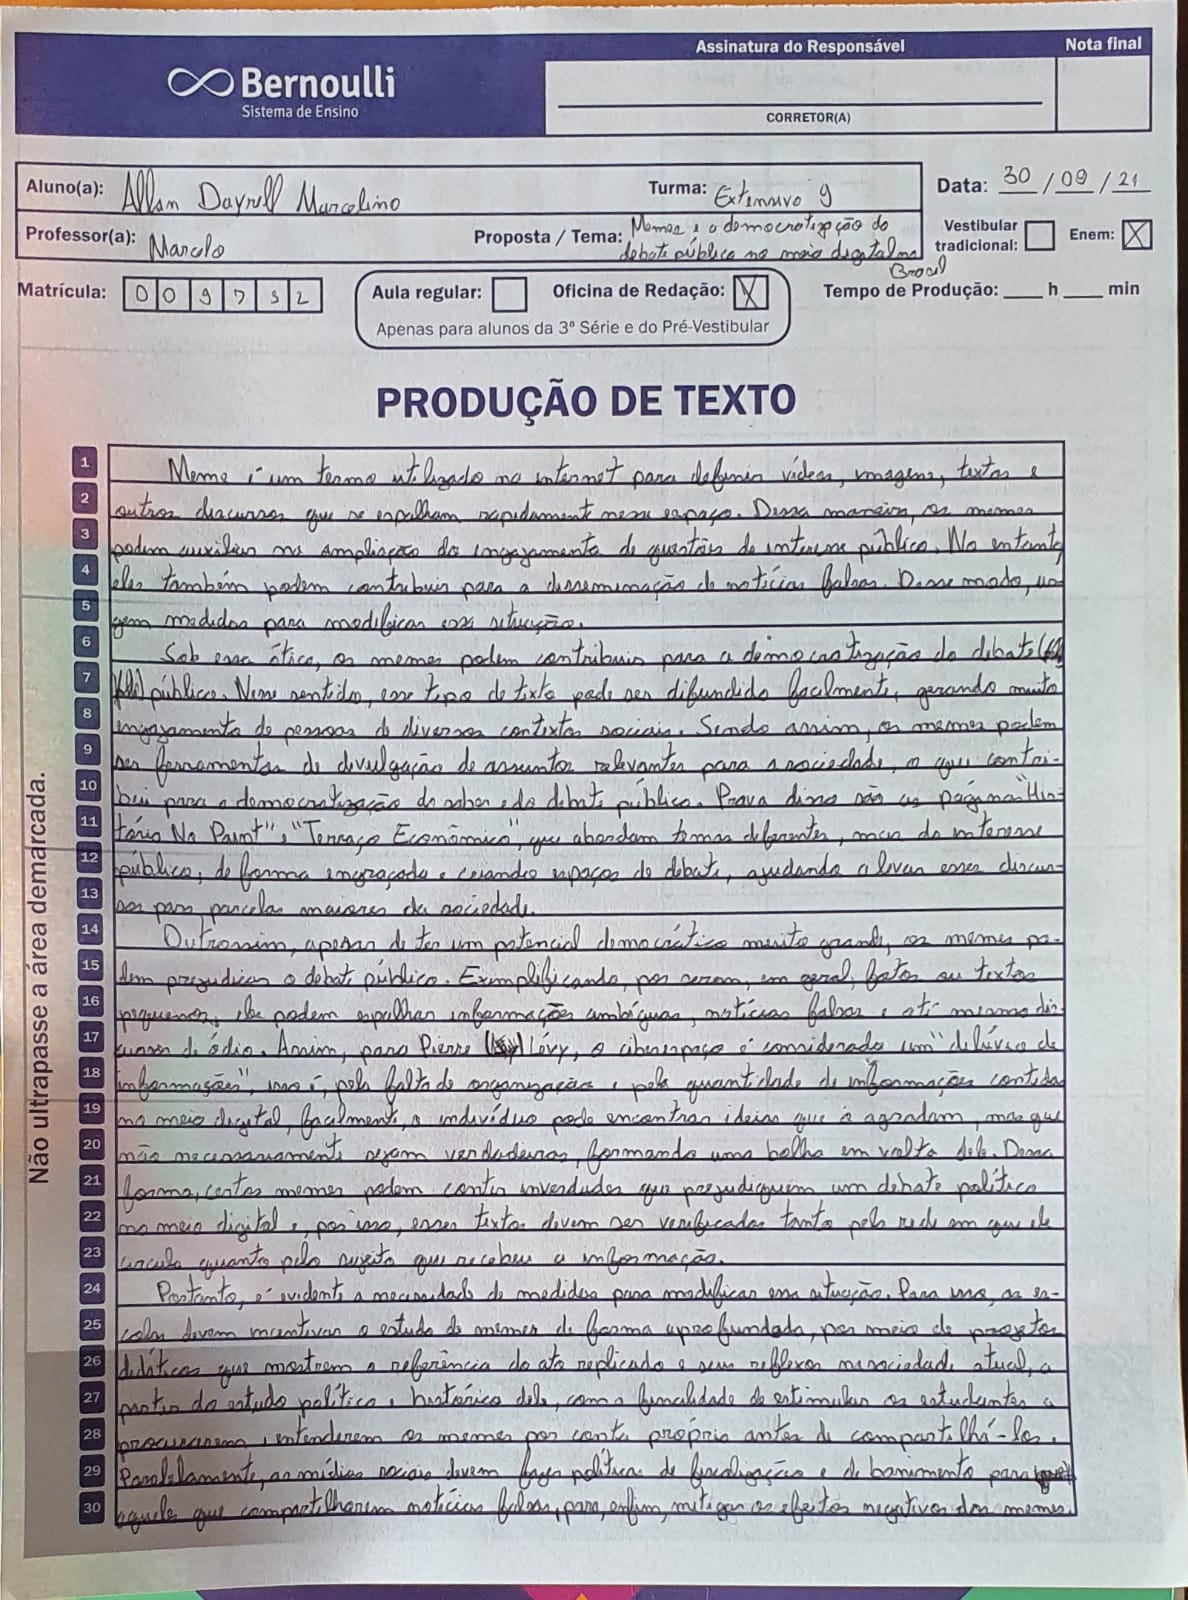 Assinatura do Responsável
Nota final
Bernoulli
Sistema de Ensino
CORRETOR(A)
Aluno(a): Allan Dayrell Marcolino
Turma: Extensivo 9
Data: 30/09/21
Professor(a): Marcelo
Proposta / Tema: Memes e a democratização do
debate público no meio digital no
Brasil
Vestibular tradicional:
Enem: X
Matrícula: 0 0 9 7 5 2
Aula regular:
Oficina de Redação: X
Apenas para alunos da 3ª Série e do Pré-Vestibular
Tempo de Produção: ____ h ____ min
PRODUÇÃO DE TEXTO
Não ultrapasse a área demarcada.
1 Meme é um termo utilizado na internet para definir vídeos, imagens, textos e
2 outros discursos que se espalham rapidamente nesse espaço. Dessa maneira, os memes
3 podem auxiliar na ampliação do engajamento de questões de interesse público. No entanto
4 eles também podem contribuir para a disseminação de notícias falsas. Desse modo, ur-
5 gem medidas para modificar essa situação.
6 Sob essa ótica, os memes podem contribuir para a democratização do debate
7 público. Nesse sentido, esse tipo de texto pode ser difundido facilmente, gerando muito
8 engajamento de pessoas de diversos contextos sociais. Sendo assim, os memes podem
9 ser ferramentas de divulgação de assuntos relevantes para a sociedade, o que contri-
10 bui para a democratização do saber e do debate público. Prova disso são as páginas "His-
11 tória No Paint" e "Terraço Econômico", que abordam temas diferentes, mas de interesse
12 público, de forma engraçada e criando espaços de debate, ajudando a levar esses discur-
13 sos para parcelas maiores da sociedade.
14 Outrossim, apesar de ter um potencial democrático muito grande, os memes po-
15 dem prejudicar o debate público. Exemplificando, por serem, em geral, fotos ou textos
16 pequenos, eles podem espalhar informações ambíguas, notícias falsas e até mesmo dis-
17 cursos de ódio. Assim, para Pierre Lévy, o ciberespaço é considerado um "dilúvio de
18 informações", isso é, pela falta de organização e pela quantidade de informações contidas
19 no meio digital, facilmente, o indivíduo pode encontrar ideias que o agradam, mas que
20 não necessariamente sejam verdadeiras, formando uma bolha em volta dele. Dessa
21 forma, certos memes podem conter inverdades que prejudiquem um debate político
22 no meio digital e, por isso, esses textos devem ser verificados tanto pela rede em que ele
23 circula quanto pelo sujeito que recebeu a informação.
24 Portanto, é evidente a necessidade de medidas para modificar essa situação. Para isso, as es-
25 colas devem incentivar o estudo de memes de forma aprofundada, por meio de projetos
26 didáticos que mostrem a referência do ato replicado e seus reflexos na sociedade atual, a
27 partir do estudo político e histórico dele, com a finalidade de estimular os estudantes a
28 procurarem e entenderem os memes por conta própria antes de compartilhá-los.
29 Paralelamente, as mídias sociais devem fazer políticas de fiscalização e de banimento para
30 aqueles que compartilharem notícias falsas, para, enfim, mitigar os efeitos negativos dos memes.